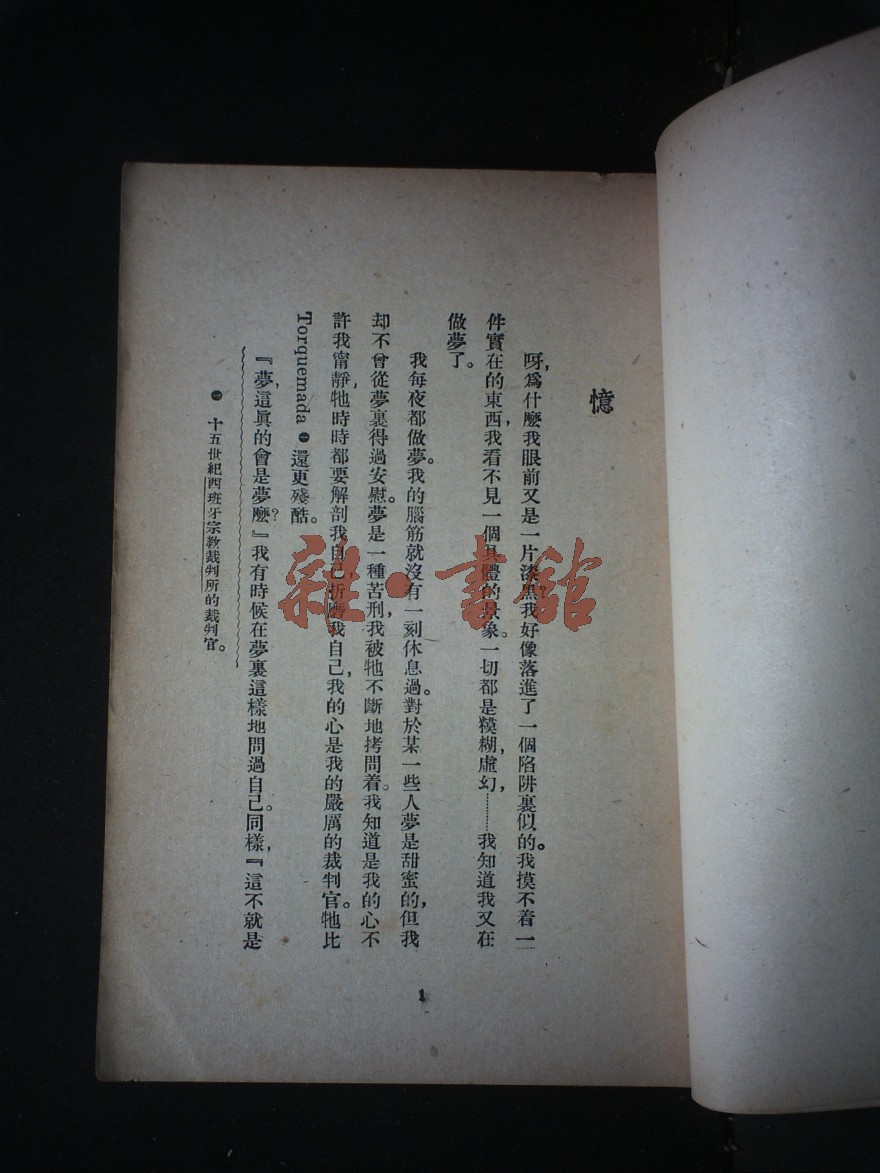 憶
呀,爲什麼我眼前又是一片漆黑?我好像落進了一個陷阱裏似的。我摸不着一
件實在的東西,我看不見一個具體的景象。一切都是糢糊,虛幻………我知道我又在
做夢了。
我每夜都做夢。我的腦筋就沒有一刻休息過。對於某一些人夢是甜蜜的,但我
却不曾從夢裏得過安慰。夢是一種苦刑,我被牠不斷地拷問着。我知道是我的心不
許我甯靜,牠時時都要解剖我自己,折磨我自己,我的心是我的嚴厲的裁判官。牠比
Torquemada ㊀ 還更殘酷。
『夢,這眞的會是夢麼?』我有時候在夢裏這樣地問過自己。同樣,『這不就是
㊀ 十五世紀西班牙宗教裁判所的裁判官。
1
雜·書館